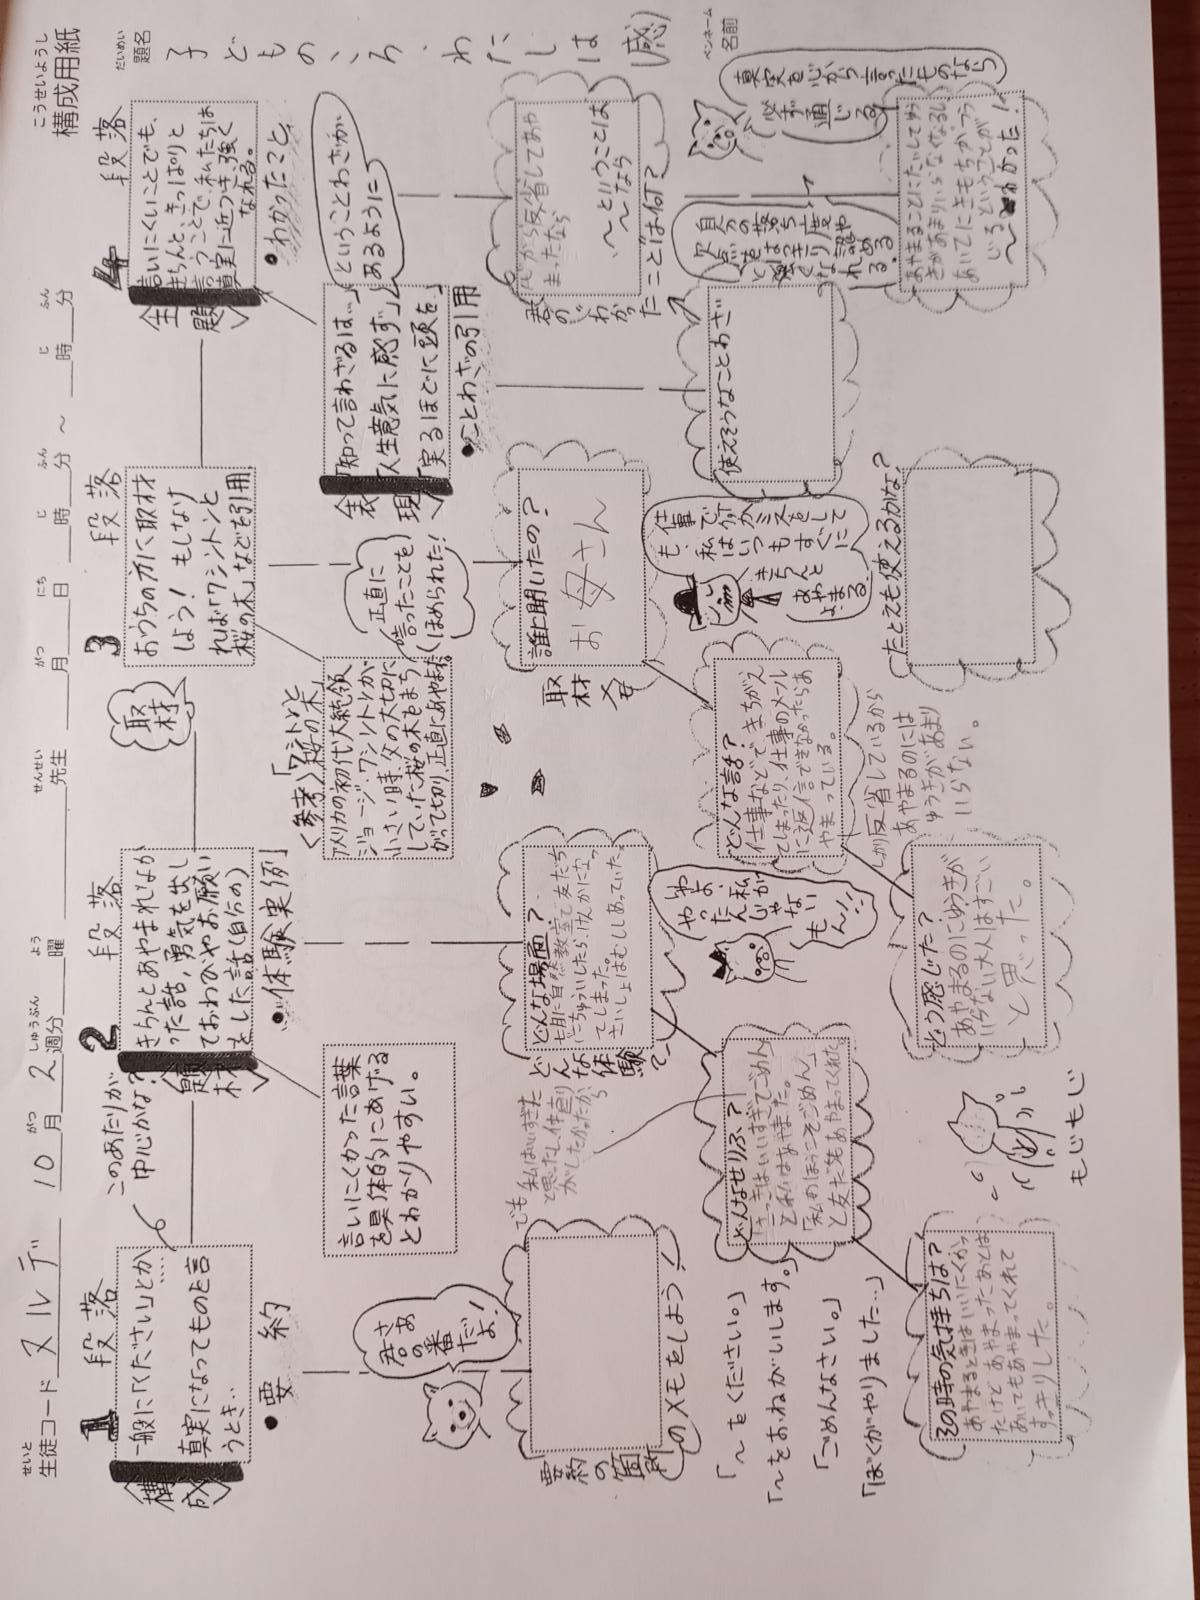 構成用紙
生徒コード ヌルデ 10月2週分 曜 先生 月 日 時 分 ~ 時 分
題名 子どものころ、わたしは(感)
ペンネーム
名前
1段落
<構成>
一般に「ください」とか
真実になってものを言
うとき、
・要約
このあたりが
中心かな?
言いにくかった言葉
を具体的にあげる
とわかりやすい。
さあ
君の番だよ!
要約の箇所のメモをしよう!
「~をください。」
「~をおねがいします。」
「ごめんなさい。」
「ぼくがやりました…」
2段落
<題材>
きちんとあやまればよか
った話、勇気を出し
ておわびやお願い
をした話(自分の)
・体験実例
どんな体験?
どんな場面?
七月に自然教室で友だち
にちゅういしたら、けんかになっ
てしまった。
さいしょはむししあっていた。
でも私はいいすぎた
と思ったし仲直り
がしたかったから
どんなせりふ?
「さっきはいいすぎてごめん」
と私はあやまった。
「私のほうこそごめん」
と友だちもあやまってくれた
その時の気持ちは?
あやまるときはいいにくかっ
たけど、あやまったあとは
あいてもあやまってくれて
すっきりした。
わよ
やったん私じゃない
もん!!
もじもじ
3段落
取材
おうちの方に取材
しよう! もしなけ
れば「ワシントンと
桜の木」などを引用
<参考>「ワシントンと桜の木」
アメリカの初代大統領
ジョージ・ワシントンが
小さい時、父の大切に
していた桜の木をまち
がって切り、正直にあやまった
正直に
言ったことを
ほめられた!
取材メモ
誰に聞いたの?
お母さん
仕事で何かミスをして
も、私はいつもすぐに
きちんと
あやまる。
どんな話?
仕事などで、まちがえ
てしまったり、仕事のメール
に返信できなかったらあ
やまっている。
しっかり反省しているから
あやまるのには
ゆうきがあまり
いらない。
どう感じた?
あやまるのにゆうきが
いらない大人はすごい
と思った。
たとえも使えるかな?
4段落
<主題>
言いにくいことでも、
きちんと、きっぱりと
言うことで、私たちは
真実に近づき、強く
なれる。
・わかったこと
<表現>
「知って言わざるは…」
「人生意気に感ず」
「実るほどに頭を」
ということわざが
あるように
・ことわざの引用
使えそうなことわざ
君のわかったことは何?
心から反省してあや
まったなら
~ということは
、~なら
自分の落ち度や
欠点をはっきり認め
真実を心から言ったものなら
必ず通じる
あやまることにたいしてゆう
きがあまりいらなくなるし
あいてにきもちがつう
じるということが
~わかった!